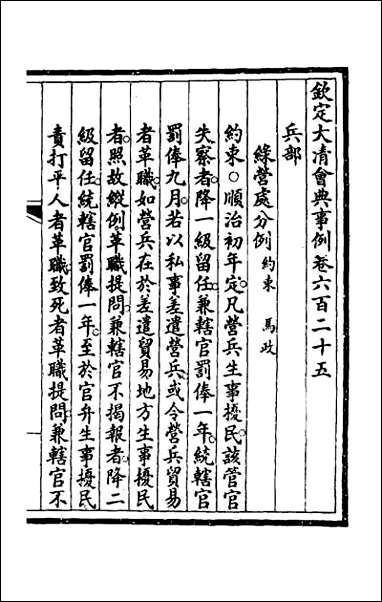 欽定大清會典事例卷六百二十五
兵部
綠營處分例 約束 馬政
約束○順治初年定凡營兵生事擾民該管官
失察者降一級留任兼轄官罰俸一年統轄官
罰俸九月若以私事差遣營兵或令營兵貿易
者革職如營兵在於差遣貿易地方生事擾民
者照故縱例革職提問兼轄官不揭報者降二
級留任統轄官罰俸一年至於官弁生事擾民
責打平人者革職致死者革職提問兼轄官不